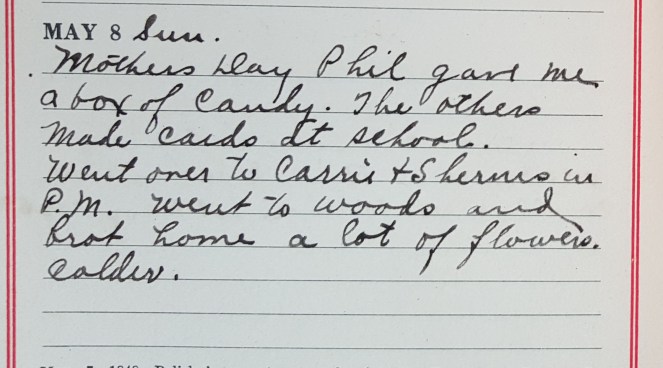 MAY 8 Sun.
Mothers Day Phil gave me
a box of Candy. The others
made cards at school.
Went over to Carrie + Sherms in
P.M. went to woods and
brot home a lot of flowers.
colder.